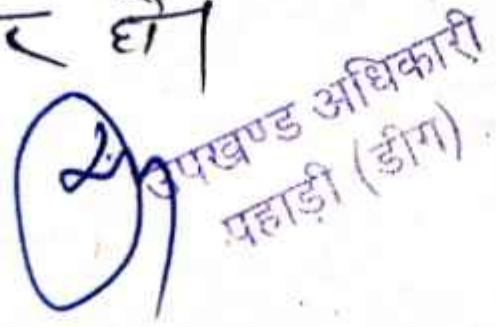 र हो।
उपखण्ड अधिकारी
पहाड़ी (डीग)